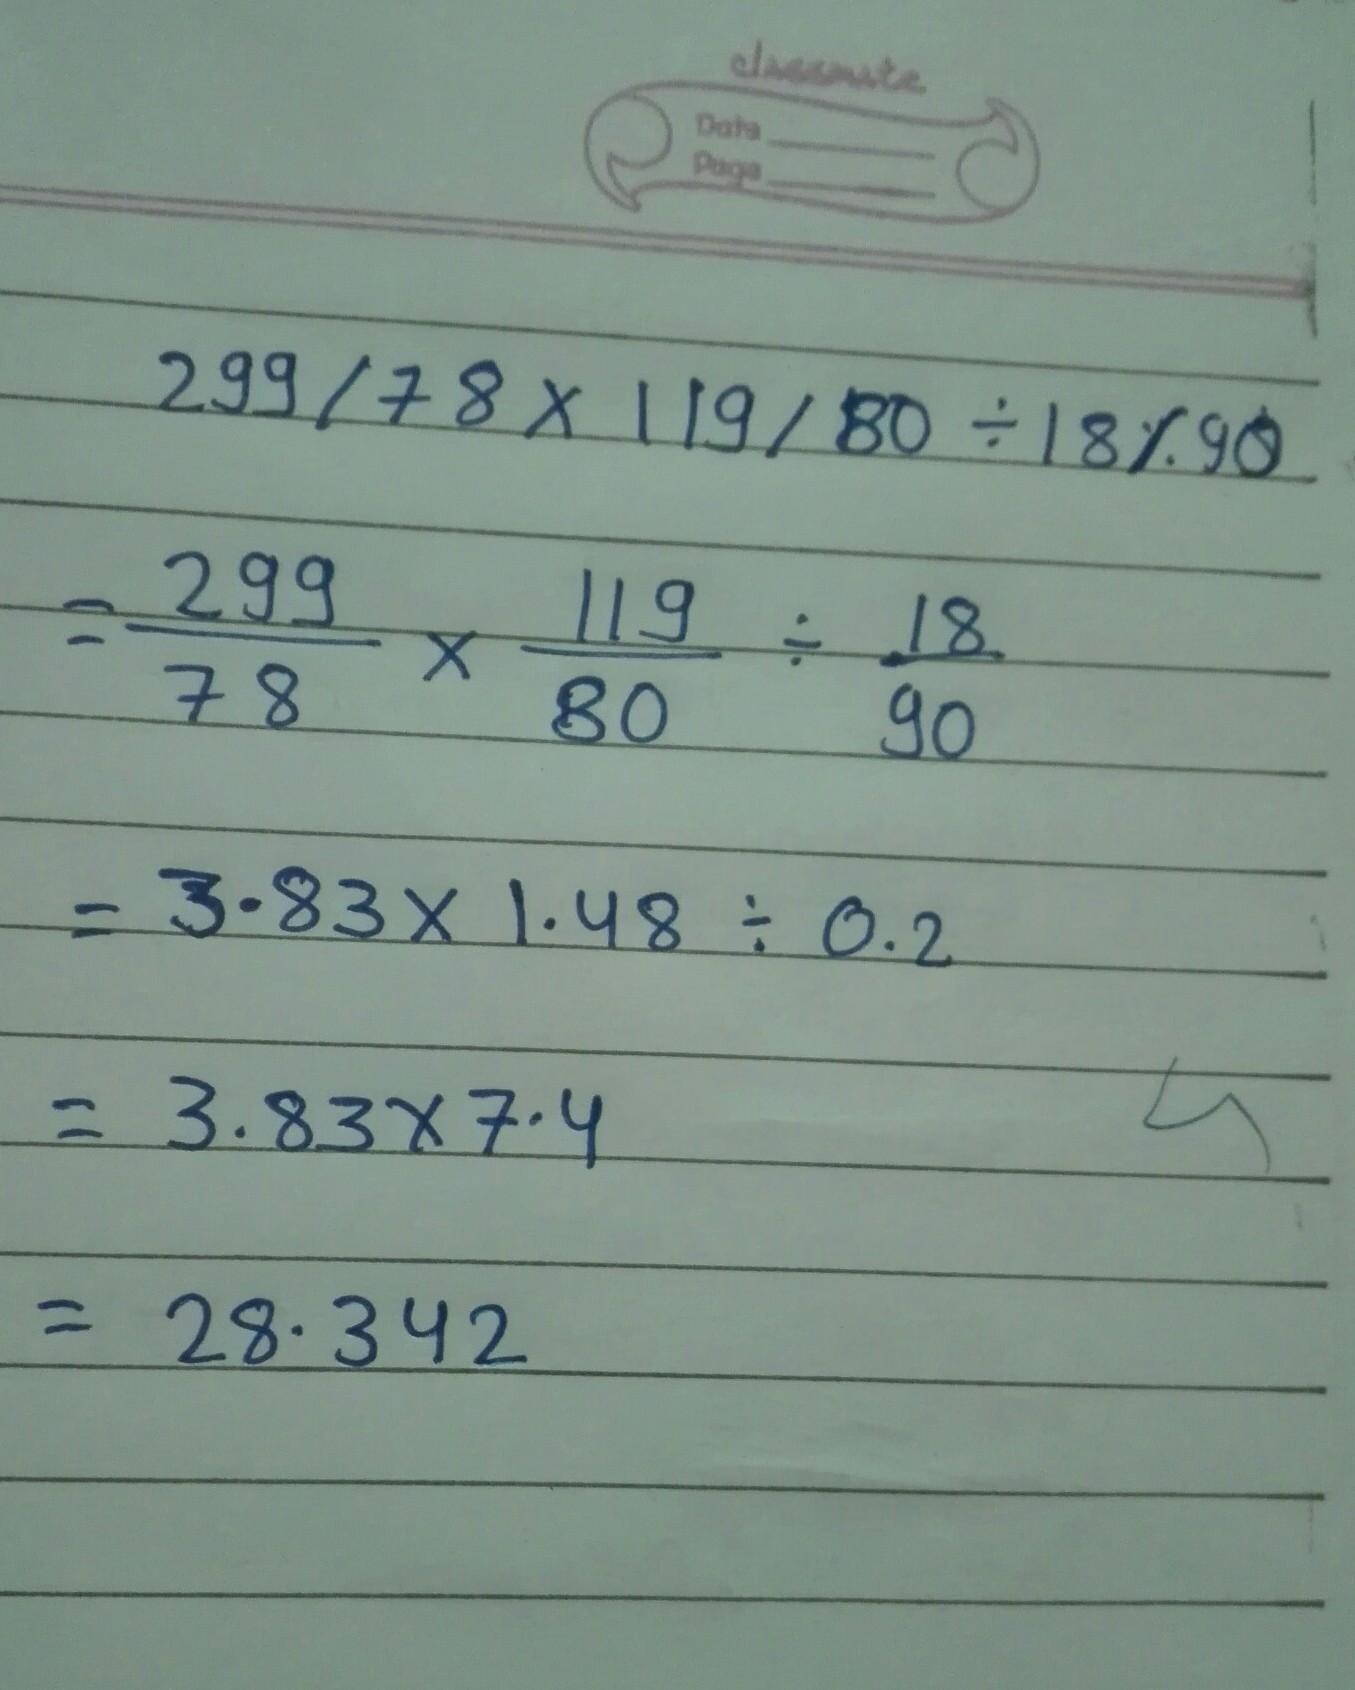 classmate
Date
Page
299/78 x 119/80 ÷ 18%90
= 299/78 x 119/80 ÷ 18/90
= 3.83 x 1.48 ÷ 0.2
= 3.83 x 7.4
= 28.342